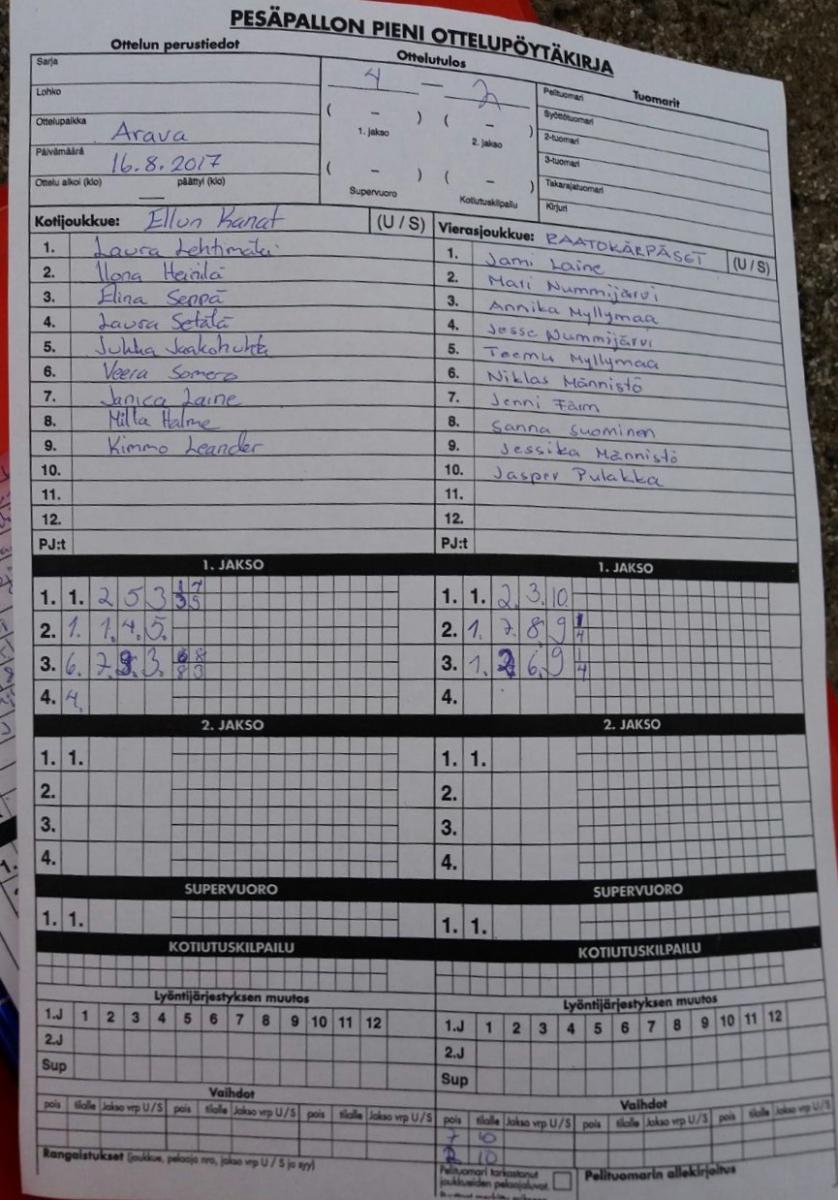 PESÄPALLON PIENI OTTELUPÖYTÄKIRJA
Ottelun perustiedot
Ottelutulos
Tuomarit
Sarja
Lohko
Ottelupaikka Arava
Päivämäärä 16.8.2017
Ottelu alkoi (klo) päättyi (klo)
4 – 2
( – ) ( – )
1. jakso 2. jakso
( – ) ( – )
Supervuoro Kotiutuskilpailu
Pelituomari
Syöttötuomari
2-tuomari
3-tuomari
Takarajatuomari
Kirjuri
Kotijoukkue: Ellun Kanat (U / S)
1. Laura Lehtimäki
2. Ilona Heinilä
3. Elina Seppä
4. Laura Setälä
5. Jukka Jaakohuhta
6. Veera Somero
7. Janica Laine
8. Milla Halme
9. Kimmo Leander
10.
11.
12.
PJ:t
Vierasjoukkue: RAATOKÄRPÄSET (U / S)
1. Jami Laine
2. Mari Nummijärvi
3. Annika Myllymaa
4. Jesse Nummijärvi
5. Teemu Myllymaa
6. Niklas Männistö
7. Jenni
8. Sanna Suominen
9. Jessika Männistö
10. Jasper Pulakka
11.
12.
PJ:t
1. JAKSO
1. 1. 2 5 3
2. 1. 1. 4. 5.
3. 6. 7. 3.
4. 4.
2. JAKSO
1. 1.
2.
3.
4.
SUPERVUORO
1. 1.
KOTIUTUSKILPAILU
Lyöntijärjestyksen muutos
1.J 1 2 3 4 5 6 7 8 9 10 11 12
2.J
Sup
Vaihdot
pois tilalle Jakso vrp U / S pois tilalle Jakso vrp U / S pois tilalle Jakso vrp U / S
Rangaistukset (joukkue, pelaaja nro, jakso vrp U / S ja syy)
1. JAKSO
1. 1. 2. 3. 10.
2. 1. 7. 8. 9 1 4
3. 1. 2 6. 9 1 4
4.
2. JAKSO
1. 1.
2.
3.
4.
SUPERVUORO
1. 1.
KOTIUTUSKILPAILU
Lyöntijärjestyksen muutos
1.J 1 2 3 4 5 6 7 8 9 10 11 12
2.J
Sup
Vaihdot
pois tilalle Jakso vrp U / S pois tilalle Jakso vrp U / S pois tilalle Jakso vrp U / S
7 10
2 10
Pelituomari tarkastanut
joukkueiden pelaajaluvat
Pelituomarin allekirjoitus